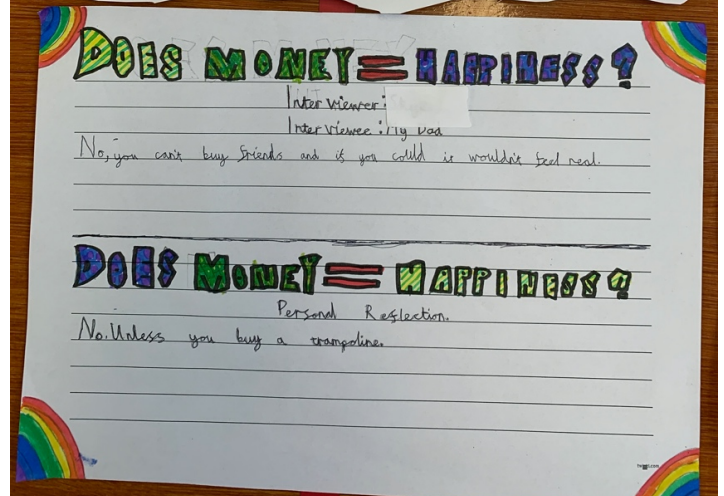 DOES MONEY = HAPPINESS?
Interviewer:
Interviewee: My Dad
No, you can't buy friends and if you could it wouldn't feel real.
DOES MONEY = HAPPINESS?
Personal Reflection.
No. Unless you buy a trampoline.